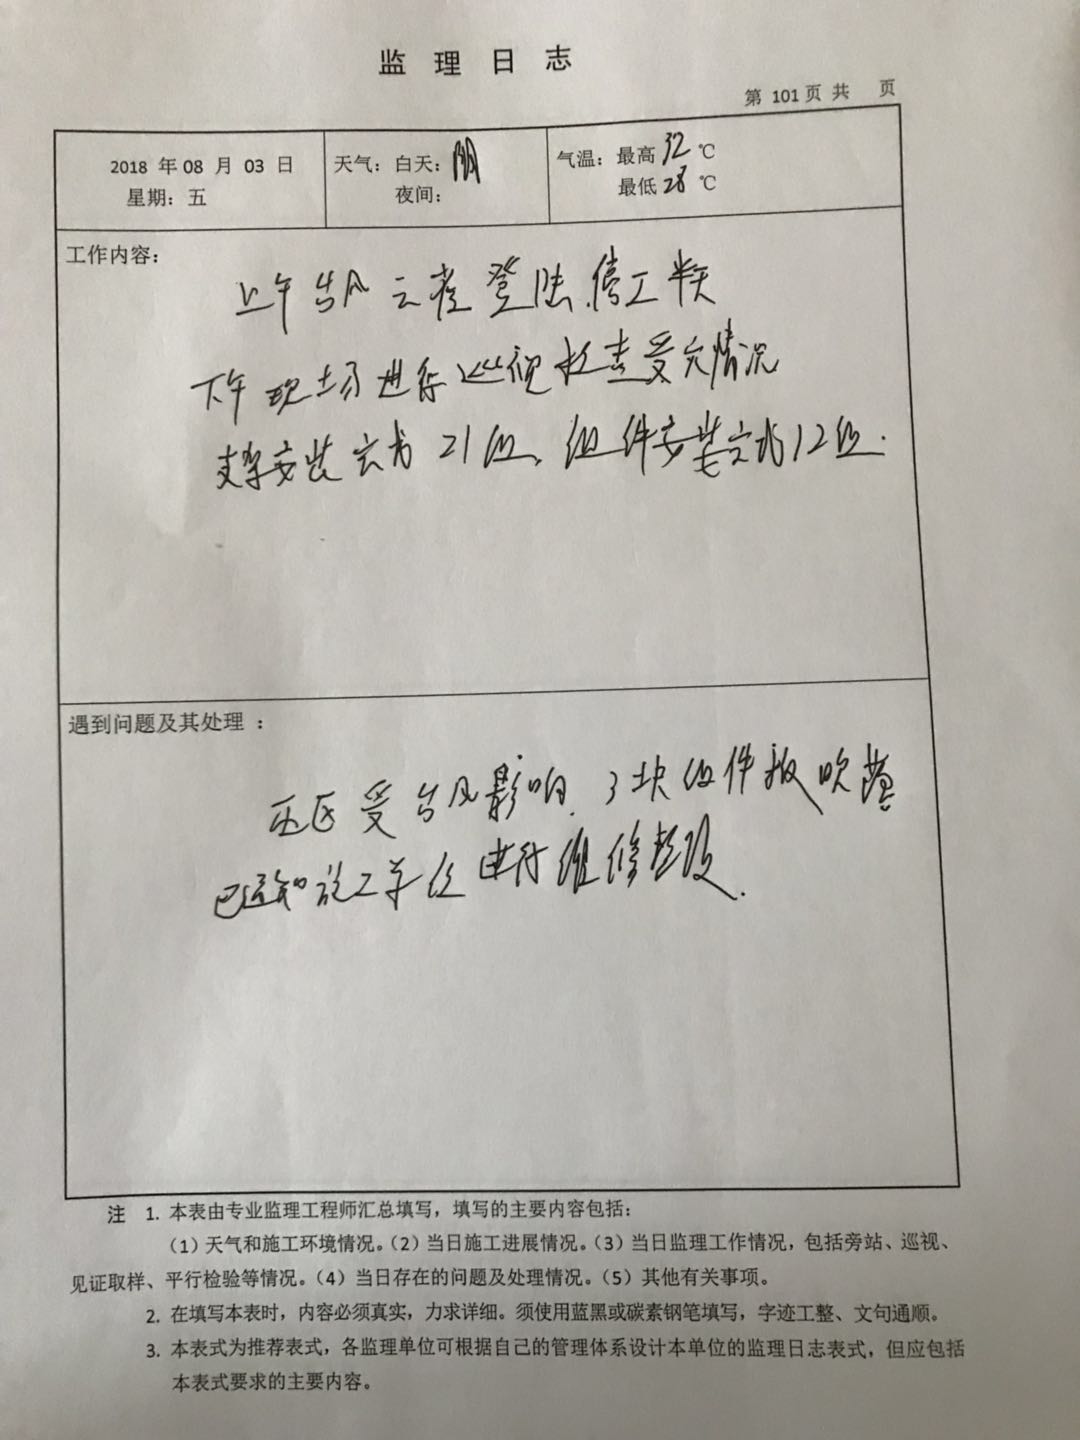 监 理 日 志
第 101 页 共 页
2018 年 08 月 03 日
星期：五
天气：白天：阴
夜间：
气温：最高 32 ℃
最低 28 ℃
工作内容：
上午台风云雀登陆.停工半天
下午现场进行巡视检查受灾情况
支架安装完成21位、组件安装完成12位.
遇到问题及其处理 ：
区受台风影响. 3块组件板吹
已通知施工单位进行维修整改.
注 1. 本表由专业监理工程师汇总填写，填写的主要内容包括：
（1）天气和施工环境情况。（2）当日施工进展情况。（3）当日监理工作情况，包括旁站、巡视、
见证取样、平行检验等情况。（4）当日存在的问题及处理情况。（5）其他有关事项。
2. 在填写本表时，内容必须真实，力求详细。须使用蓝黑或碳素钢笔填写，字迹工整、文句通顺。
3. 本表式为推荐表式，各监理单位可根据自己的管理体系设计本单位的监理日志表式，但应包括
本表式要求的主要内容。